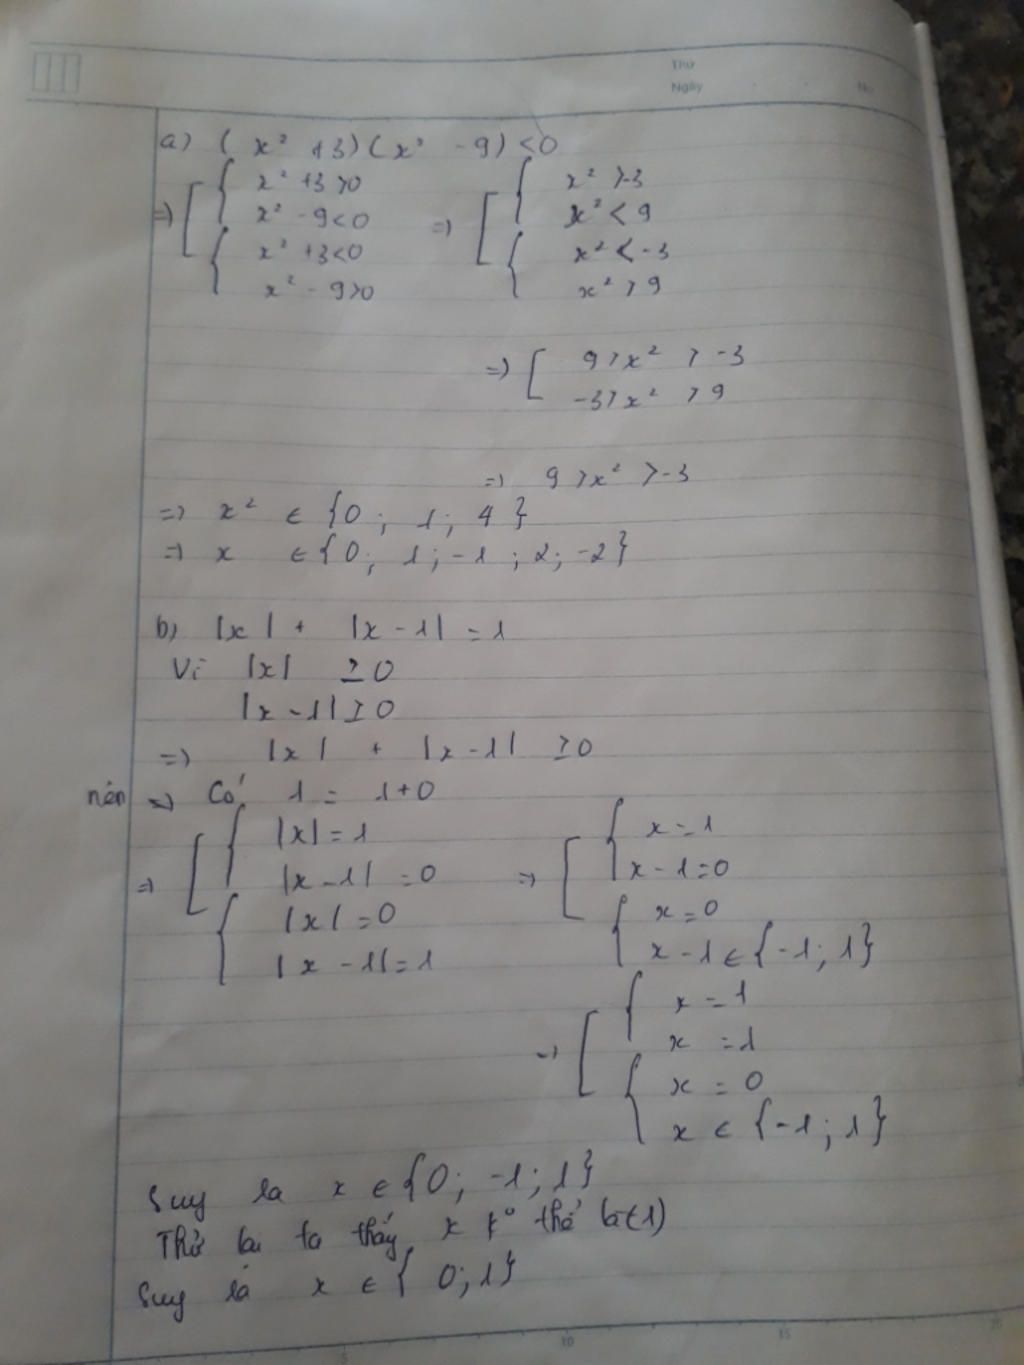 Thứ
Ngày No.
a) ( x² +3)(x² - 9) <0
=) [ { x² +3 >0 =) [ { x² >-3
x² - 9<0 x² < 9
{ x² +3<0 { x² < -3
x² - 9>0 x² > 9
=) [ 9 > x² > -3
-3> x² > 9
=) 9 >x² >-3
=> x² ∈ {0 ; 1 ; 4 }
=) x ∈ {0; 1 ; -1 ; 2; -2}
b) |x| + |x - 1| = 1
Vì |x| ≥ 0
|x - 1| ≥ 0
=) |x| + |x-1| ≥ 0
nên => Có 1 = 1+0
=) [ { |x| = 1 =) [ { x = 1
|x - 1| = 0 x - 1 = 0
{ |x| = 0 { x = 0
| x - 1| = 1 x - 1 ∈ {-1; 1}
=) [ { x = 1
x = 1
{ x = 0
x ∈ {-1; 1}
Suy ra x ∈ {0; -1; 1}
Thử lại ta thấy x k° thể là(-1)
Suy ra x ∈ { 0; 1}
5 10 15 20